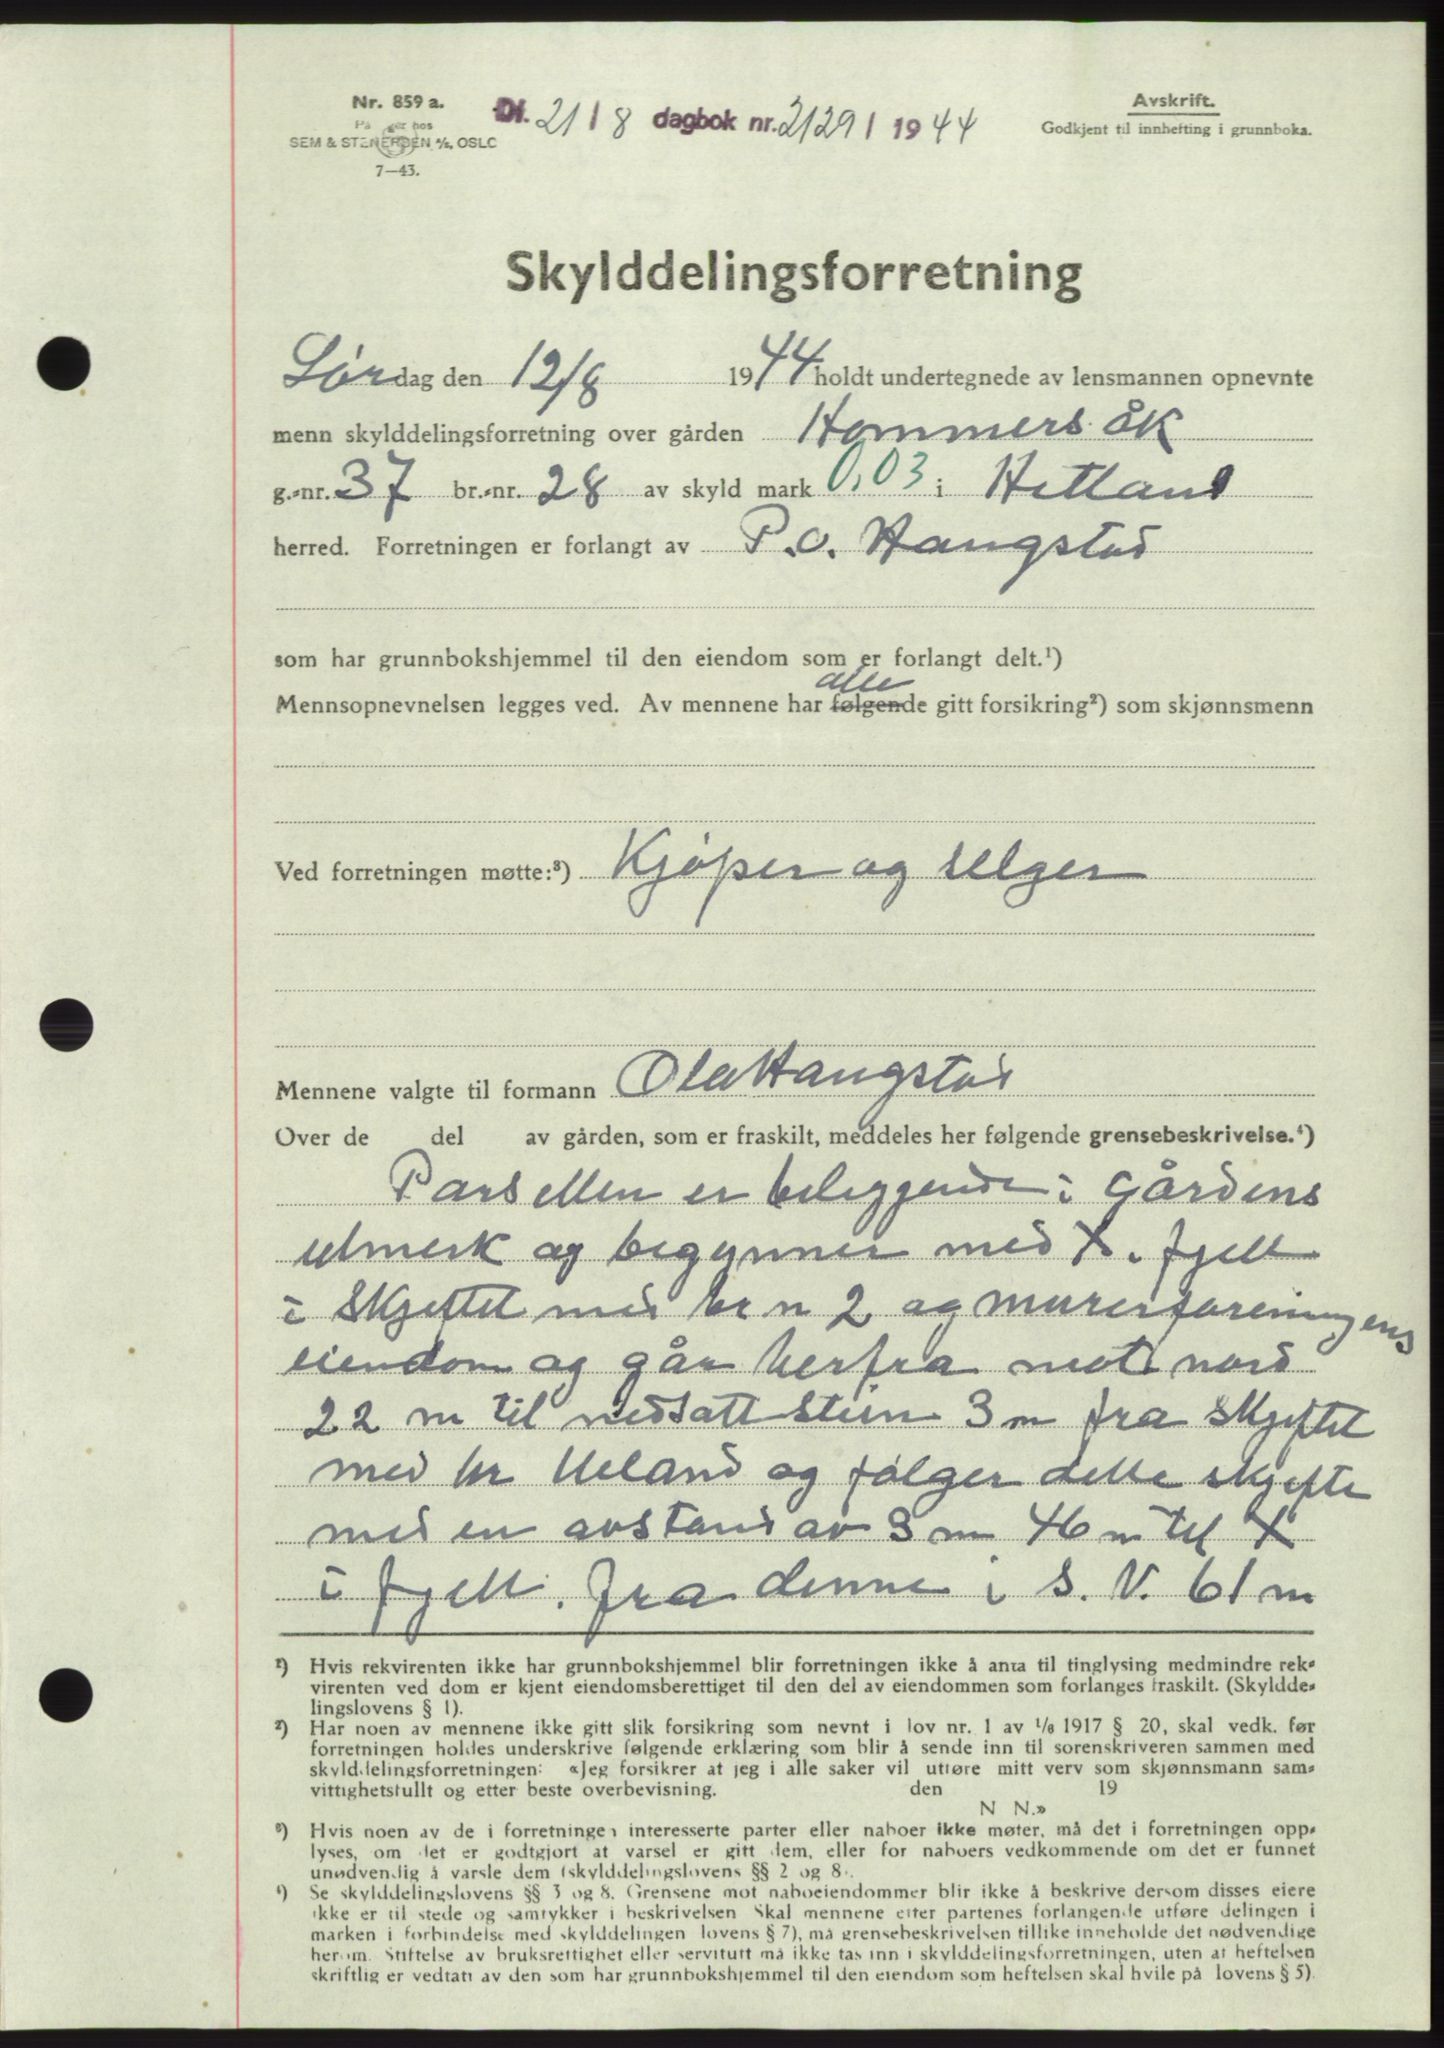 Nr. 859 a.
SEM & STENERSEN A/S, OSLO
7—43.
Df. 21/8 dagbok nr. 2129/1944
Avskrift.
Godkjent til innhefting i grunnboka.
Skylddelingsforretning
Lørdag den 12/8 1944 holdt undertegnede av lensmannen opnevnte
menn skylddelingsforretning over gården Hommersåk
g.-nr. 37 br.-nr. 28 av skyld mark 0,03 i Hetland
herred. Forretningen er forlangt av P.O. Haugstad
som har grunnbokshjemmel til den eiendom som er forlangt delt.¹)
alle
Mennsopnevnelsen legges ved. Av mennene har følgende gitt forsikring²) som skjønnsmenn
Ved forretningen møtte:³) Kjøper og selger
Mennene valgte til formann Ola Haugstad
Over de del av gården, som er fraskilt, meddeles her følgende grensebeskrivelse.⁴)
Parsellen er beliggende i gårdens
utmark og begynner med X i fjell
i skjeftet med br n 2 og murerforeningens
eiendom og går herfra mot nord
22 m til nedsatt stein 3 m fra skjeftet
med br Ueland og følger dette skjefte
med en avstand av 3 m 46 m til X
i fjell. fra denne i S.V. 61 m
¹) Hvis rekvirenten ikke har grunnbokshjemmel blir forretningen ikke å anta til tinglysing medmindre rek-
virenten ved dom er kjent eiendomsberettiget til den del av eiendommen som forlanges fraskilt. (Skyldde-
lingslovens § 1).
²) Har noen av mennene ikke gitt slik forsikring som nevnt i lov nr. 1 av 1/6 1917 § 20, skal vedk. før
forretningen holdes underskrive følgende erklæring som blir å sende inn til sorenskriveren sammen med
skylddelingsforretningen: «Jeg forsikrer at jeg i alle saker vil utføre mitt verv som skjønnsmann sam-
vittighetsfullt og etter beste overbevisning. den 19
N N.»
³) Hvis noen av de i forretningen interesserte parter eller naboer ikke møter, må det i forretningen opp-
lyses, om det er godtgjort at varsel er gitt dem, eller for naboers vedkommende om det er funnet
unødvendig å varsle dem (skylddelingslovens §§ 2 og 8).
⁴) Se skylddelingslovens §§ 3 og 8. Grensene mot naboeiendommer blir ikke å beskrive dersom disses eiere
ikke er til stede og samtykker i beskrivelsen Skal mennene etter partenes forlangende utføre delingen i
marken i forbindelse med skylddelingen lovens § 7), må grensebeskrivelsen tillike inneholde det nødvendige
herom. Stiftelse av bruksrettighet eller servitutt må ikke tas inn i skylddelingsforretningen, uten at heftelsen
skriftlig er vedtatt av den som har grunnbokshjemmel til den eiendom som heftelsen skal hvile på lovens § 5).